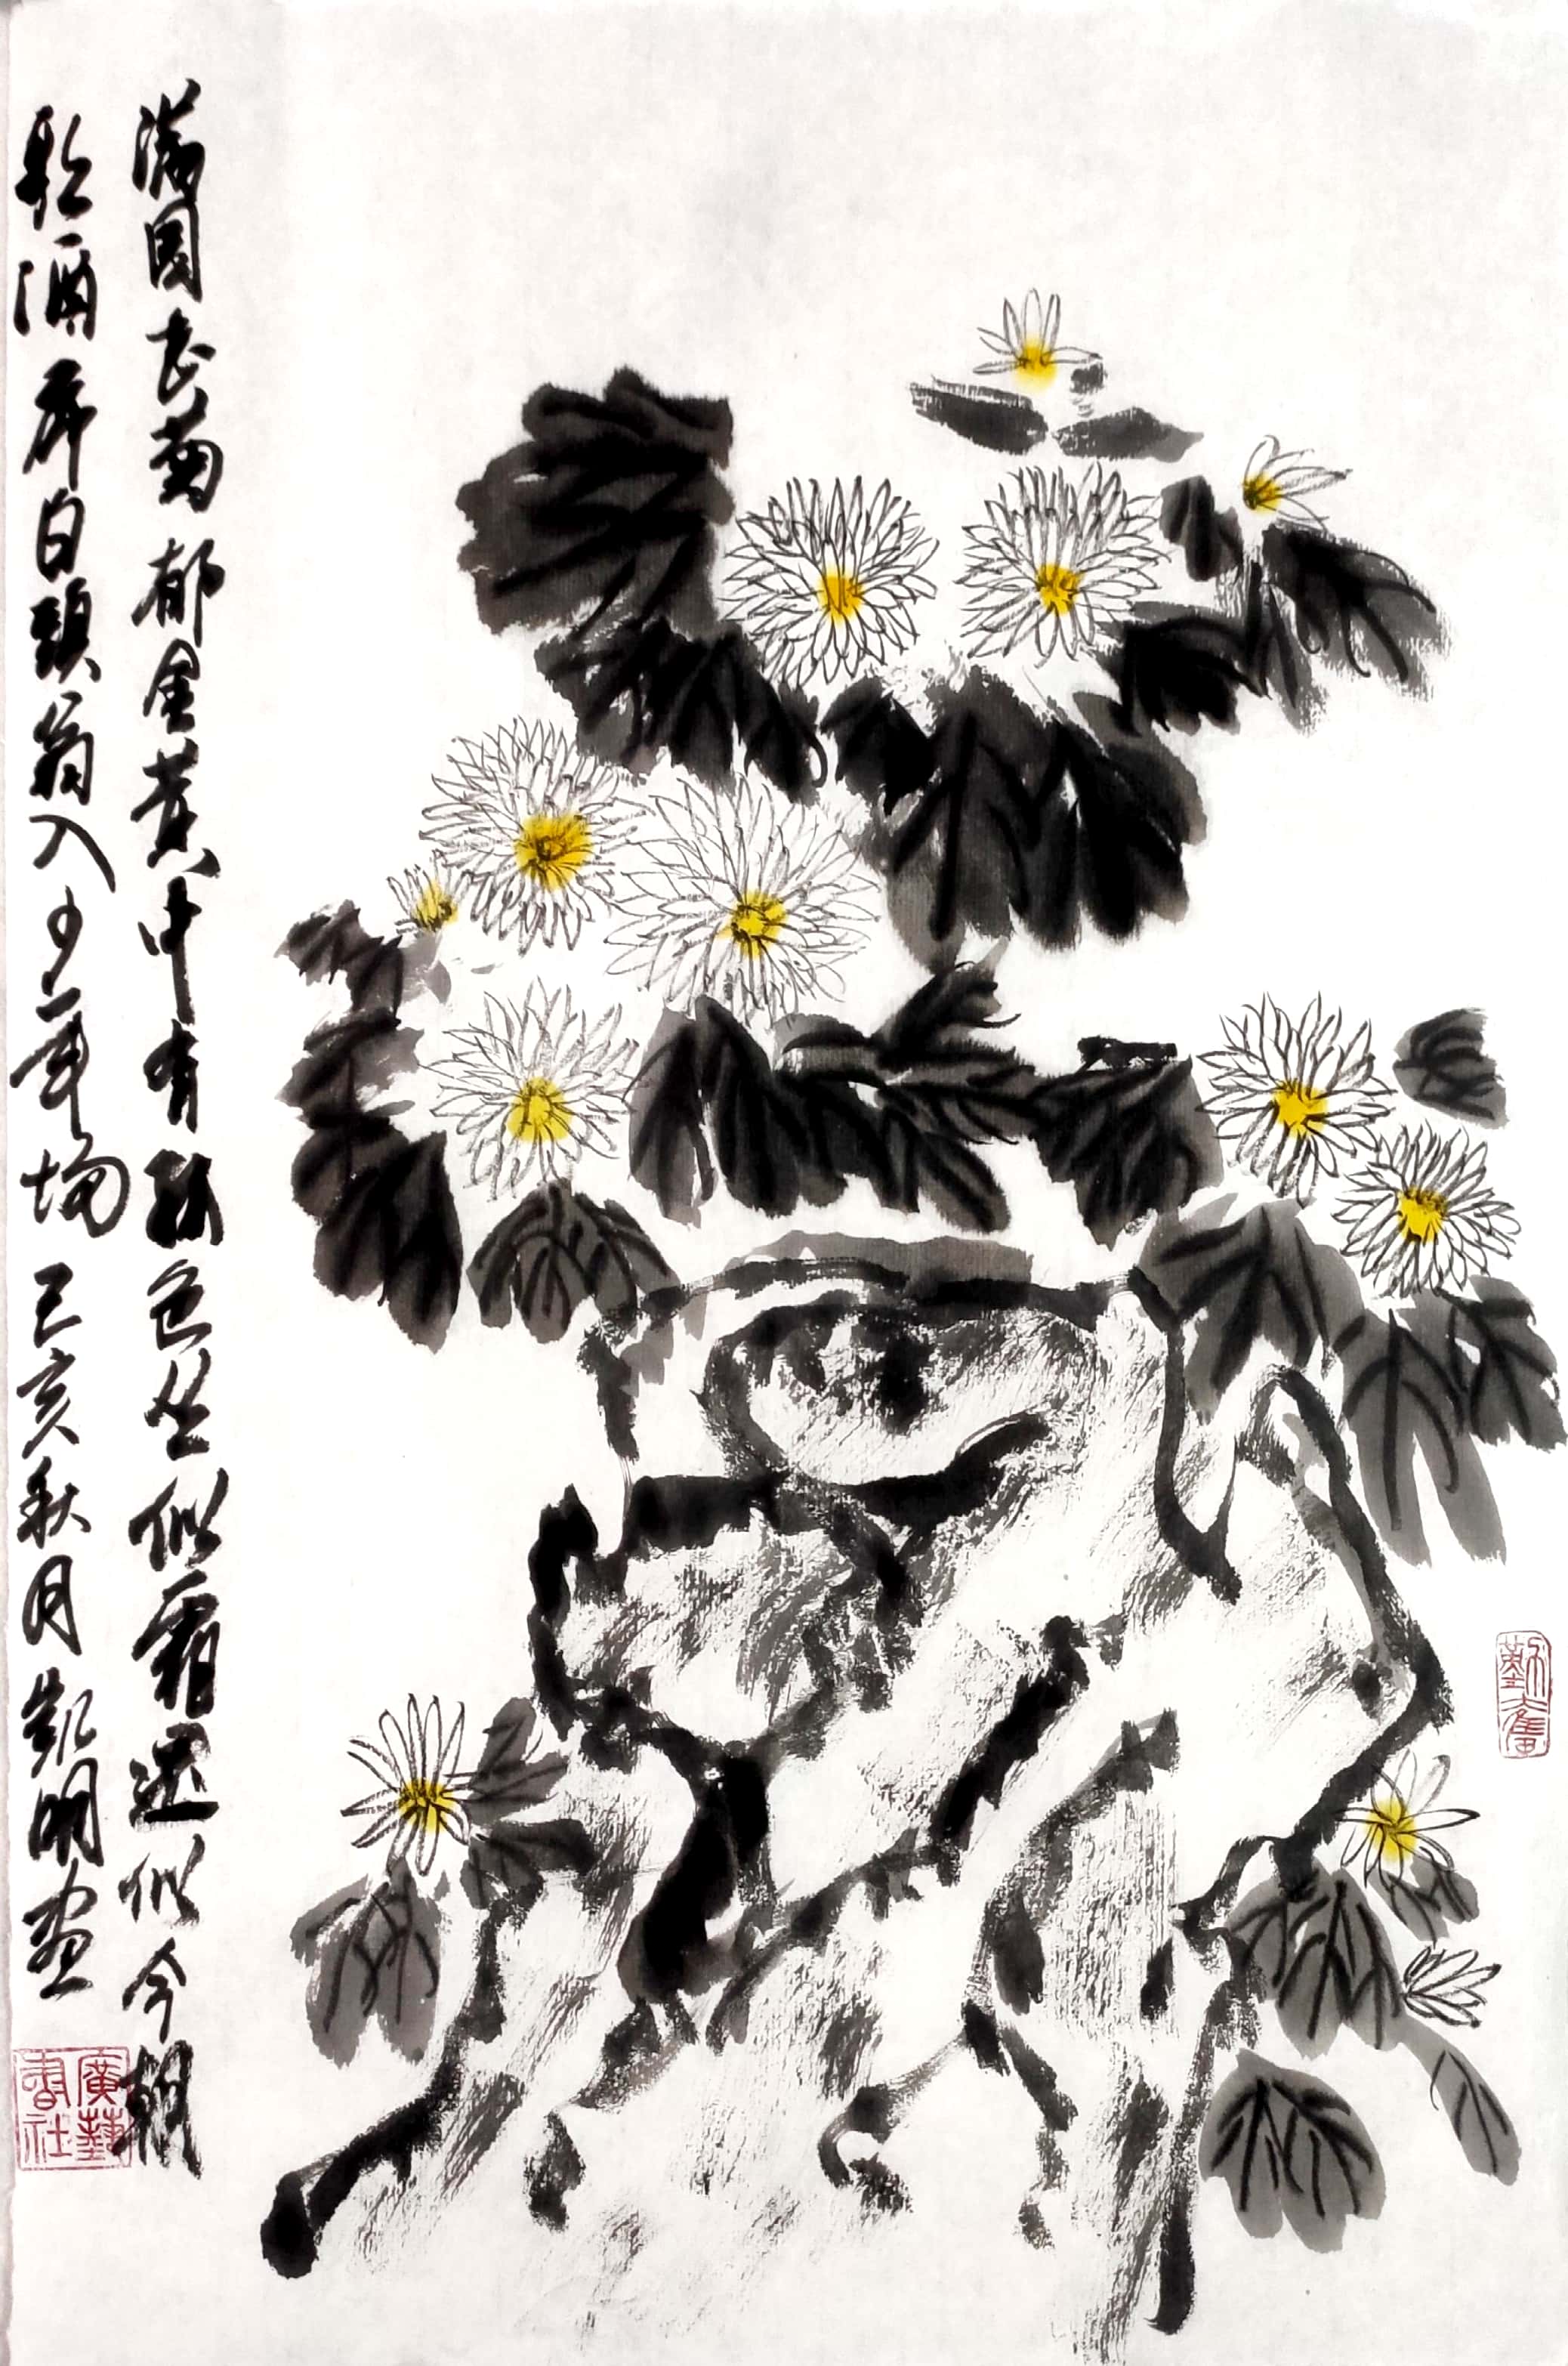 满園花菊郁金黄中有孤色丛似霜還似今朝
歌酒席白頭翁入少年场 己亥秋月凱明画
廣藝
書社
勤奮